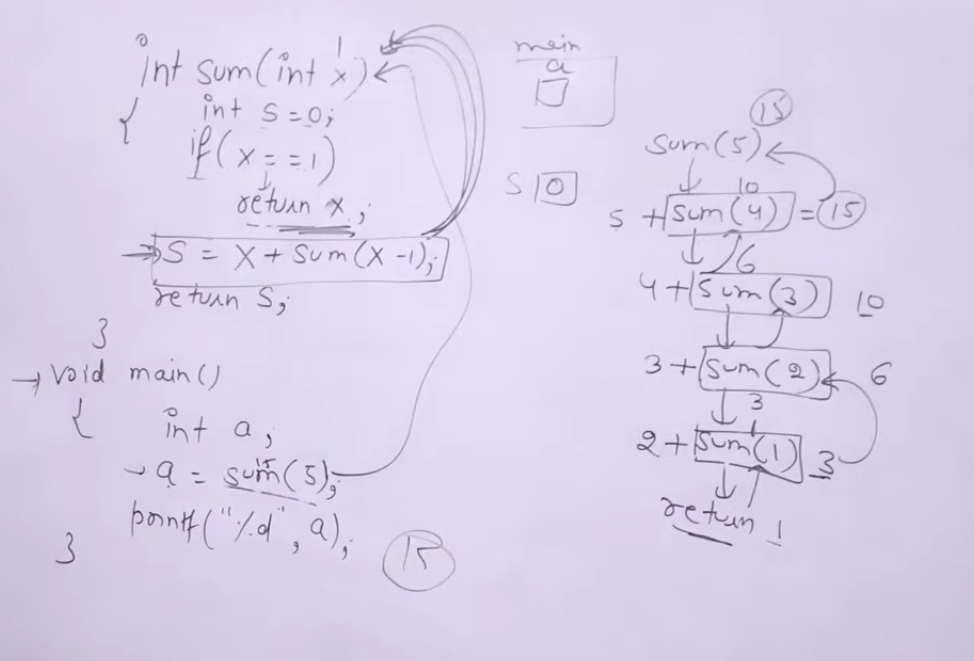 1
int sum(int x)
{
int s = 0;
if(x == 1)
return x;
s = x + sum(x - 1);
return s;
}
void main()
{
int a;
15
a = sum(5);
printf("%d", a);
}
15
main
a
S 0
15
sum(5)
10
5 + sum(4) = 15
6
4 + sum(3) 10
3 + sum(2) 6
3
1
2 + sum(1) 3
return 1